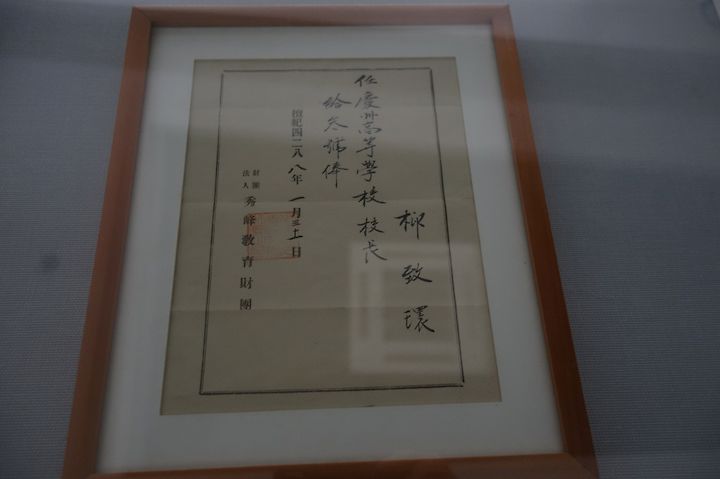 柳致環
任慶州高等學校校長
給叄號俸
檀紀四二八八年一月三十一日
財團法人 秀峰敎育財團